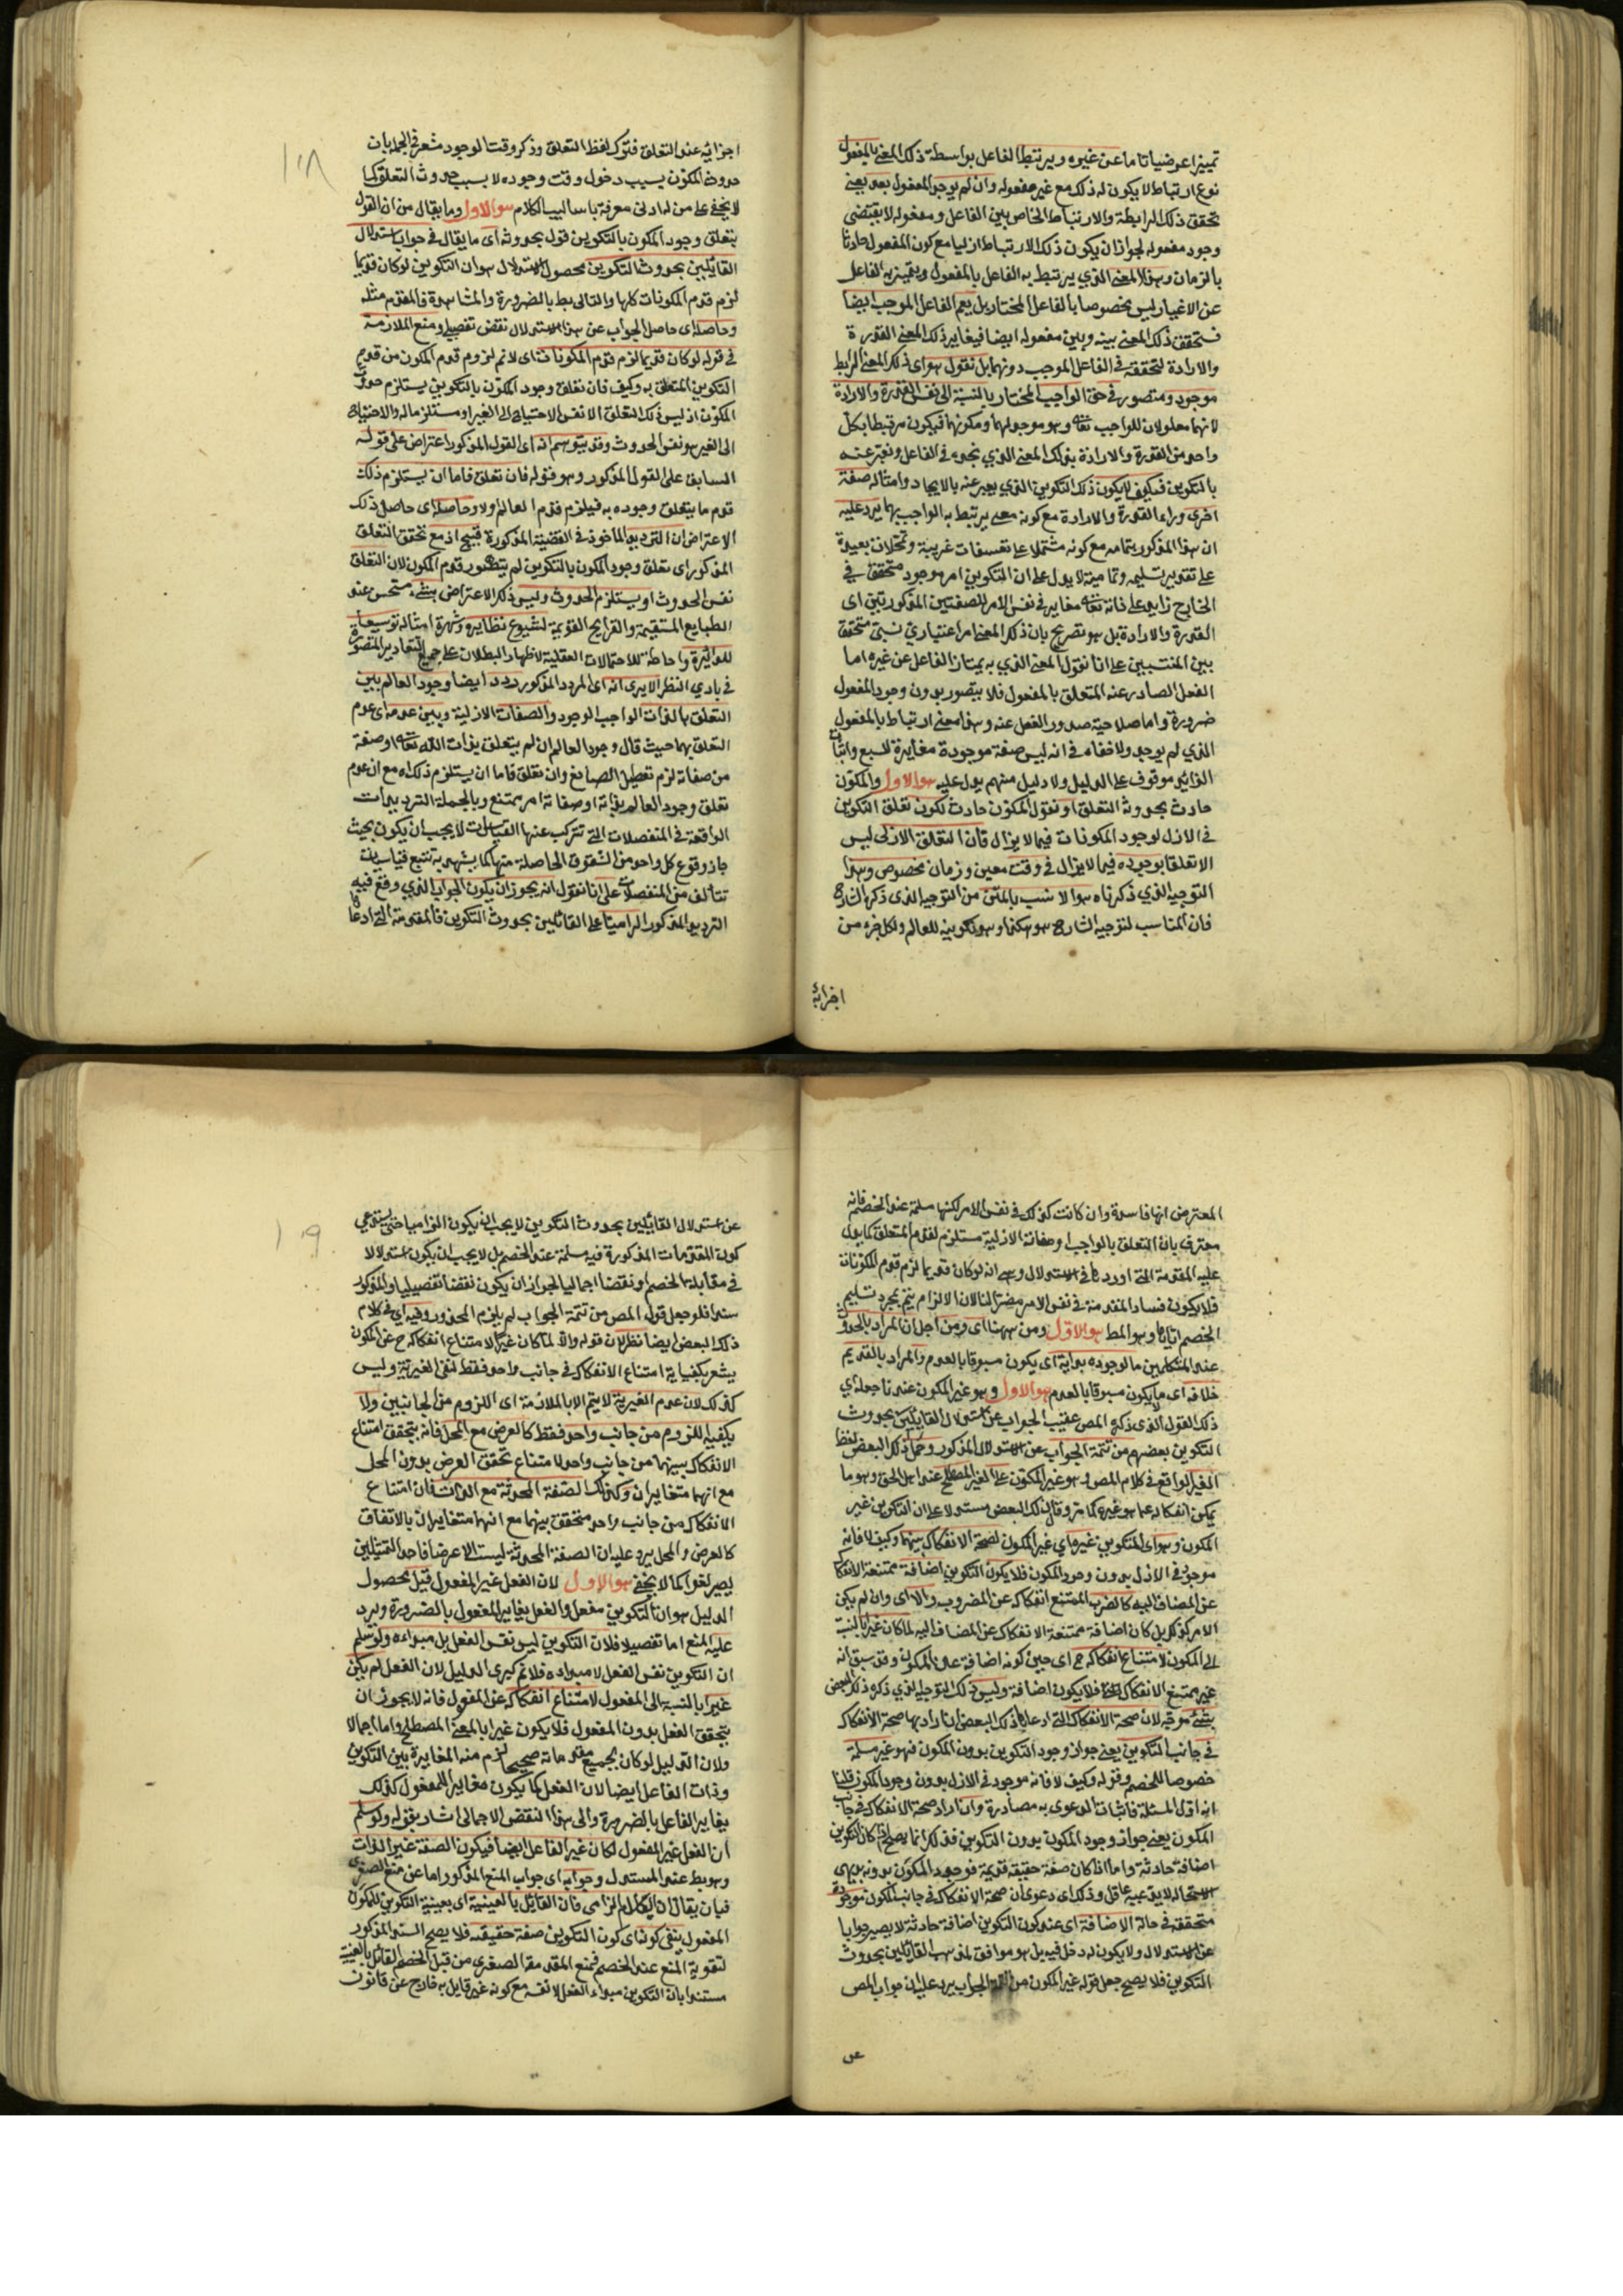 تمييزا عرضيا تاما عن غيره ويرتبط الفاعل بواسطة ذلك المعنى بالمفعول
نوع ارتباط لا يكون له ذلك مع غير مفعوله وان لم يوجد المفعول بعد يعني
تحقق ذلك الرابطة والارتباط الخاص بين الفاعل ومفعوله لا يقتضي
وجود مفعوله لجواز ان يكون ذلك الارتباط ازليا مع كون المفعول حادثا
بالزمان وهذا المعنى الذي يرتبط به الفاعل بالمفعول ويتميز به الفاعل
عن الاغيار ليس مخصوصا بالفاعل المختار بل يعم الفاعل الموجب ايضا
فتحقق ذلك المعنى بينه وبين مفعوله ايضا فيغاير ذلك المعنى القدرة
والارادة لتحققه في الفاعل الموجب دونهما بل نقول هو اى ذلك المعنى الرابط
موجود ومتصور في حق الواجب المختار بالنسبة الى نفس القدرة والارادة
لانهما معلولان للواجب تعالى وهو موجد لهما ومكونهما فيكون مرتبطا بكل
واحد من القدرة والارادة بذلك المعنى الذي نجده في الفاعل ونعبر عنه
بالتكوين فكيف لا يكون ذلك التكوين الذي يعبر عنه بالايجاد وامثاله صفة
اخرى وراء القدرة والارادة مع كونه معنى يرتبط به الواجب بهما يرد عليه
ان هذا المذكور بتمامه مع كونه مشتملا على تعسفات غريبة وتمحلات بعيدة
على تقدير تسليمه وتماميته لا يدل على ان التكوين امر موجود متحقق في
الخارج زايد على ذاته تعالى مغاير في نفس الامر للصفتين المذكورتين اى
القدرة والارادة بل هو تصريح بان ذلك المعنى امر اعتباري نسبي متحقق
بين المنتسبين على انا نقول المعنى الذي به يمتاز الفاعل عن غيره اما
الفعل الصادر عنه المتعلق بالمفعول فلا يتصور بدون وجود المفعول
ضرورة واما صلاحية صدور الفعل عنه وهذا معنى ارتباط بالمفعول
الذي لم يوجد ولا خفاء في انه ليس صفة موجودة مغايرة للسبع واثبات
الزائد موقوف على الدليل ولا دليل منهم يدل عليه هو الاول والمكون
حادث بحدوث التعلق او نقول المكون حادث لكون تعلق التكوين
في الازل لوجود المكونات فيما لا يزال فان التعلق الازلي ليس
الا تعلقا بوجوده فيما لا يزال في وقت معين وزمان مخصوص وهذا
التوجيه الذي ذكرناه هو الانسب بالمتن من التوجيه الذى ذكره الشارح
فان المناسب لتوجيه الشارح هو هكذا وهو تكوينه للعالم ولكل جزء من
اجزائه
اجزائه عند التعلق فترك لفظ التعلق وذكر وقت الوجود مشعر في الجملة بان
حدوث المكون بسبب دخول وقت وجوده لا بسبب حدوث التعلق كما
لا يخفى على من له ادنى معرفة باساليب الكلام هو الاول وما يقال من ان القول
بتعلق وجود المكون بالتكوين قول بحدوثه اى ما يقال في جواب استدلال
القائلين بحدوث التكوين محصول الاستدلال هو ان التكوين لو كان قديما
لزم قدم المكونات كلها والتالى بط بالضرورة والمشاهدة فالمقدم مثله
وحاصله اى حاصل الجواب عن هذا الاستدلال نقض تفصيلي ومنع الملازمة
في قوله لو كان قديما لزم قدم المكونات اى لا نم لزوم قدم المكون من قدم
التكوين المتعلق به وكيف فان تعلق وجود المكون بالتكوين يستلزم حدوث
المكون اذ ليس ذلك التعلق الا نفس الاحتياج الى الغير او مستلزما له والاحتياج
الى الغير هو نفس الحدوث وقد يتوهم انه اى القول المذكور اعتراض على قوله
السابق على القول المذكور وهو قوله فان تعلق فاما ان يستلزم ذلك
قدم ما يتعلق وجوده به فيلزم قدم العالم او لا وحاصله اى حاصل ذلك
الاعتراض ان الترديد الماخوذ في القضية المذكورة قبيح اذ مع تحقق التعلق
المذكور اى تعلق وجود المكون بالتكوين لم يتصور قدم المكون لان التعلق
نفس الحدوث او يستلزم الحدوث وليس ذلك الاعتراض بشيء مستحسن عند
الطبايع المستقيمة والقرايح القويمة لشيوع نظايره وشهرة امثاله توسيعا
للدائرة واحاطة للاحتمالات العقلية لاظهار البطلان على جميع التقادير المتصورة
في بادي النظر الا يرى انه اى المردد المذكور ردد ايضا وجود العالم بين
التعلق بالذات الواجب الوجود والصفات الازلية وبين عدمه اى عدم
التعلق بهما حيث قال وجود العالم ان لم يتعلق بذات الله تعالى او صفة
من صفاته لزم تعطيل الصانع وان تعلق فاما ان يستلزم ذلك اه مع ان عدم
تعلق وجود العالم بذاته او صفاته امر ممتنع وبالجملة الترديدات
الواقعة في المنفصلات التي تتركب عنها القياسات لا يجب ان يكون بحيث
جاز وقوع كل واحد من الشقوق الحاصلة منها كما يشهد به تتبع قياسات
تتالف من المنفصلات على انا نقول انه يجوز ان يكون الجواب الذي وقع فيه
الترديد المذكور الزاميا على القائلين بحدوث التكوين فالمقدمة التي ادعاها
١٠٨
المعترض انها فاسدة وان كانت كذلك في نفس الامر لكنها مسلمة عند الخصم فانه
معترف بان التعلق بالواجب وصفاته الازلية مستلزم لقدم المتعلق كما يدل
عليه المقدمة التي اوردها في الاستدلال وهي انه لو كان قديما لزم قدم المكونات
فلا يكون فساد المقدمة في نفس الامر مضرا لنا لان الالزام يتم بمجرد تسليم
الخصم اياها وهو المط هو الاول ومن ههنا اى ومن اجل ان المراد بالحدوث
عند المتكلمين ما لوجوده بداية اى يكون مسبوقا بالعدم والمراد بالقديم
خلافه اى ما لا يكون مسبوقا بالعدم هو الاول وهو غير المكون عندنا جعل اي
ذلك القول الذى ذكره المص عقيب الجواب عن استدلال القايلين بحدوث
التكوين بعضهم من تتمة الجواب عن الاستدلال المذكور وحمل ذلك البعض لفظ
الغير الواقع في كلام المص وهو غير المكون على الغير المصطلح عند اهل الحق وهو ما
يمكن انفكاكه عما هو غيره كما مر وقال ذلك البعض مستدلا على ان التكوين غير
المكون وهو اى التكوين غيره اي غير المكون لصحة الانفكاك بينهما وكيف لا فانه
موجود في الازل بدون وجود المكون فلا يكون التكوين اضافة ممتنعة الانفكاك
عن المضاف اليه كالضرب الممتنع انفكاكه عن المضروب والا اى وان لم يكن
الامر كذلك بل كان اضافة ممتنعة الانفكاك عن المضاف اليه لما كان غيرا بالنسبة
الى المكون لامتناع انفكاكه ح اى حين كونه اضافة عن المكون وقد سبق انه
غير ممتنع الانفكاك فلا يكون اضافة وليس ذلك التوجيه الذي ذكره ذلك البعض
بشيء موجه لان صحة الانفكاك التي ادعاها ذلك البعض ان اراد بها صحة الانفكاك
في جانب التكوين يعني جواز وجود التكوين بدون المكون فهو غير مسلمة
خصوصا للخصم وقوله وكيف لا فانه موجود في الازل بدون وجود المكون قلنا
انه اول المسئلة فاثبات الدعوى به مصادرة وان اراد صحة الانفكاك في جانب
المكون يعني جواز وجود المكون بدون التكوين فذلك انما يصلح اذا كان التكوين
اضافة حادثة واما اذا كان صفة حقيقة قديمة فوجود المكون بدونه بديهي
الاستحالة لا يدعيه عاقل وذلك اى دعوى ان صحة الانفكاك في جانب المكون موجودة
متحققة في حالة الاضافة اى عند كون التكوين اضافة حادثة لا يصير جوابا
عن الاستدلال ولا يكون له دخل فيه بل هو موافق لمذهب القائلين بحدوث
التكوين فلا يصح جعل قوله غير المكون من الجواب يرد عليه ان جواب المص
عن
عن استدلال القايلين بحدوث التكوين لا يجب ان يكون الزاميا حتى يستدعي
كون المقدمات المذكورة فيه مسلمة عند الخصم بل لا يجب ان يكون استدلالا
في مقابلة الخصم او نقضا اجماليا لجواز ان يكون نقضا تفصيليا والمذكور
سندا فلو جعل قول المص من تتمة الجواب لم يلزم المحذور وفيه اي في كلام
ذلك البعض ايضا نظر لان قوله والا لما كان غيرا لامتناع انفكاكه ح عن المكون
يشعر بكفاية امتناع الانفكاك في جانب واحد فقط لنفي الغيرية وليس
كذلك لان عدم الغيرية لا يتم الا بالملازمة اى اللزوم من الجانبين ولا
يكفيه اللزوم من جانب واحد فقط كالعرض مع المحل فانه يتحقق امتناع
الانفكاك بينهما من جانب واحد لامتناع تحقق العرض بدون المحل
مع انهما متغايران وكذلك الصفة المحدثة مع الذات فان امتناع
الانفكاك من جانب واحد متحقق بينهما مع انهما متغايران بالاتفاق
كالعرض والمحل يرد عليه ان الصفة المحدثة ليست الا عرضا فاحد التمثيلين
يصير لغوا كما لا يخفى هو الاول لان الفعل غير المفعول قيل محصول
الدليل هو ان التكوين فعل والفعل يغاير المفعول بالضرورة ويرد
عليه المنع اما تفصيلا فلان التكوين ليس نفس الفعل بل مبداءه ولو سلم
ان التكوين نفس الفعل لا مبداءه فلا نم كبرى الدليل لان الفعل لم يكن
غيرا بالنسبة الى المفعول لامتناع انفكاكه عن المفعول فانه لا يجوز ان
يتحقق الفعل بدون المفعول فلا يكون غيرا بالمعنى المصطلح واما اجمالا
ولان الدليل لو كان بجميع مقدماته صحيحا لزم منه المغايرة بين التكوين
وذات الفاعل ايضا لان الفعل كما يكون مغايرا للمفعول كذلك
يغاير الفاعل بالضرورة والى هذا النقض الاجمالي اشار بقوله ولو سلم
ان الفعل غير المفعول لكان غير الفاعل ايضا فيكون الصفة غير الذات
وهو بط عند المستدل وجوابه اى جواب المنع المذكور اما عن منع الصغرى
فبان يقال ان الكلام الزامي فان القائل بالعينية اى بعينية التكوين للمكون
المفعول ينفي كونه اى كون التكوين صفة حقيقة فلا يصح السند المذكور
لتقوية المنع عند الخصم فمنع المقدمة الصغرى من قبل الخصم القائل بالعينية
مستندا بان التكوين مبداء الفعل لا نفسه مع كونه غير قايل به خارج عن قانون
١٠٩